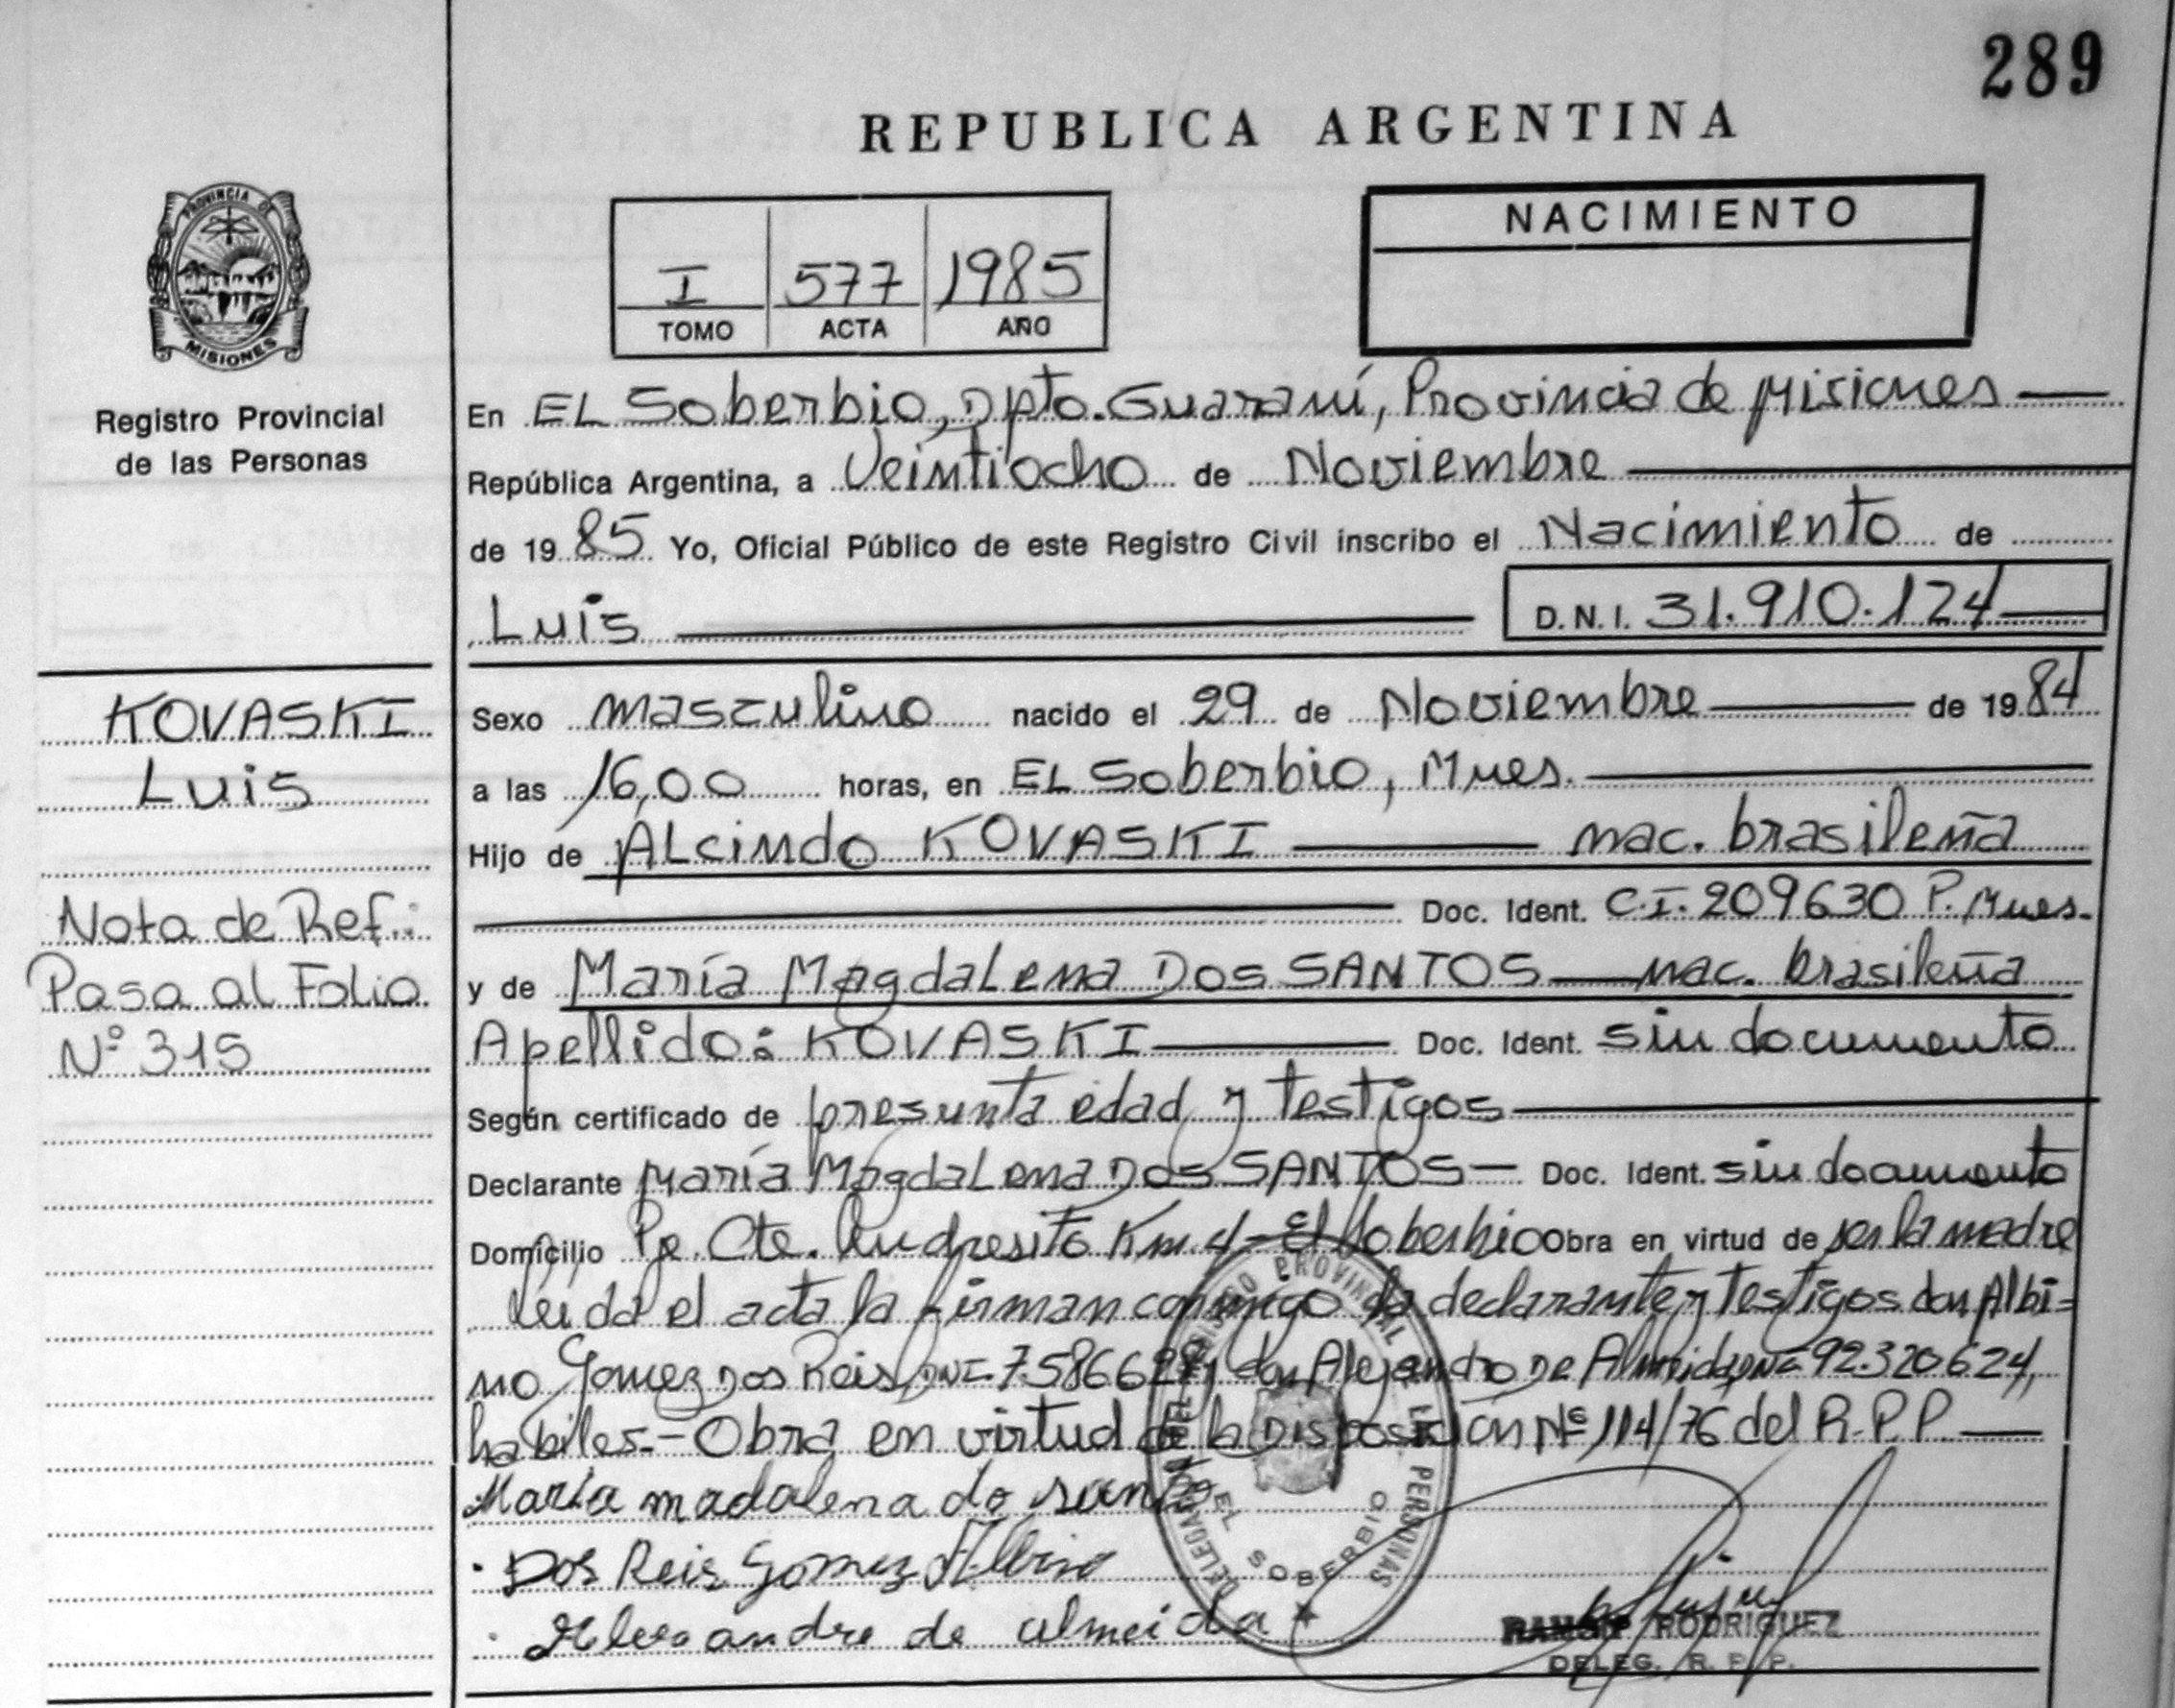 289
REPUBLICA ARGENTINA
PROVINCIA DE
MISIONES
Registro Provincial
de las Personas
I 577 1985
TOMO ACTA AÑO
NACIMIENTO
En EL Soberbio, Dpto. Guaraní, Provincia de Misiones
República Argentina, a Veintiocho de Noviembre
de 1985 Yo, Oficial Público de este Registro Civil inscribo el Nacimiento de
Luis D.N.I. 31.910.124
KOVASKI
Luis
Nota de Ref.:
Pasa al Folio
Nº 315
Sexo masculino nacido el 29 de Noviembre de 1984
a las 16,00 horas, en EL Soberbio, Mnes.
Hijo de ALcindo KOVASKI nac. brasileña
Doc. Ident. C.I. 209630 P. Mnes.
y de María MagdaLena DOS SANTOS nac. brasileña
Apellido: KOVASKI Doc. Ident. sin documento
Según certificado de presunta edad y testigos
Declarante María MagdaLena DOS SANTOS - Doc. Ident. sin documento
Domicilio Pje. Cte. Andresito Km 4 - El Soberbio Obra en virtud de ser la madre
leída el acta la firman conmigo la declarante y testigos don Albi=
no Gomez Dos Reis DNI 7.586.628 y don Alejandro De Almeida DNI 92.320624,
habiles.- Obra en virtud de la Disposición Nº 114/76 del R.P.P.
Maria madalena do santo
Dos Reis Gomez Albino
de almeida
REGISTRO PROVINCIAL DE LAS PERSONAS
DELEGACION
EL SOBERBIO
RAMON RODRIGUEZ
DELEG. R. P. P.